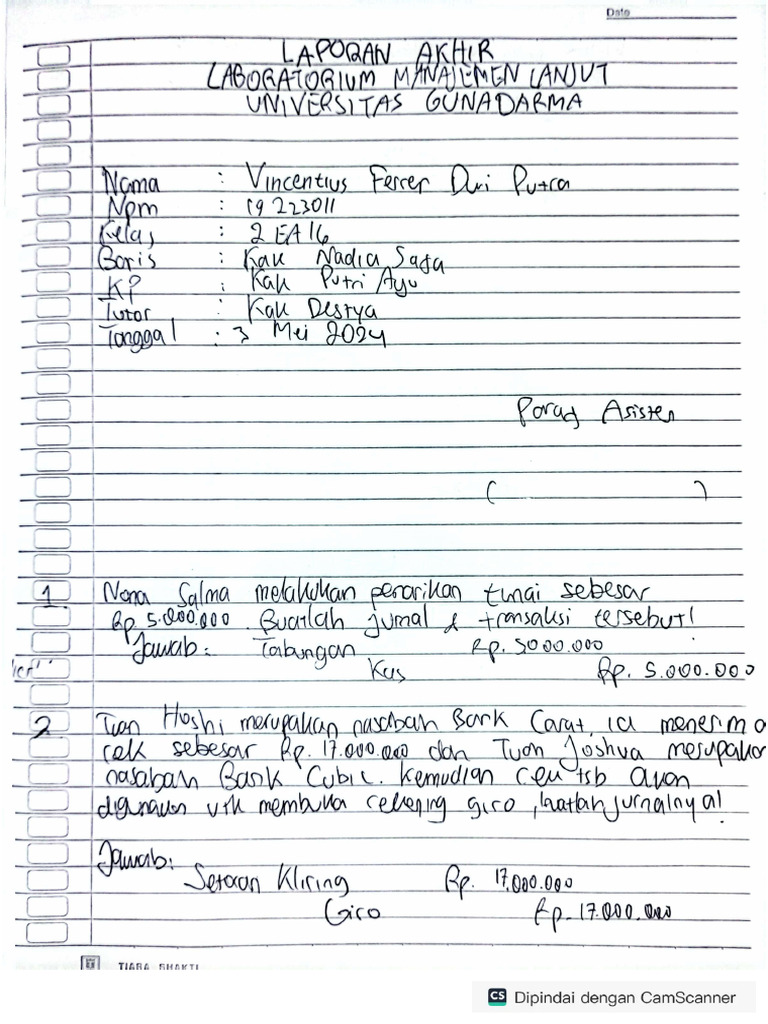 Date
LAPORAN AKHIR
LABORATORIUM MANAJEMEN LANJUT
UNIVERSITAS GUNADARMA
Nama : Vincentius Ferrer Dwi Putra
Npm : 19223011
Kelas : 2 EA 16
Baris : Kak Nadia Safa
KP : Kak Putri Ayu
Tutor : Kak Destya
Tanggal : 3 Mei 2024
Paraf Asisten
( )
1 Nona Salma melakukan penarikan tunai sebesar
Rp. 5.000.000. Buatlah jurnal & transaksi tersebut!
Jawab: Tabungan Rp. 5000.000
Kas Rp. 5.000.000
2 Tuan Hoshi merupakan nasabah Bank Carat, ia menerima
cek sebesar Rp. 17.000.000 dan Tuan Joshua merupakan
nasabah Bank Cubic. Kemudian cek tsb akan
digunakan utk membuka rekening giro, buatlah jurnalnya!
Jawab:
Setoran Kliring Rp. 17.000.000
Giro Rp. 17.000.000
TIARA SHAKTI
CS Dipindai dengan CamScanner